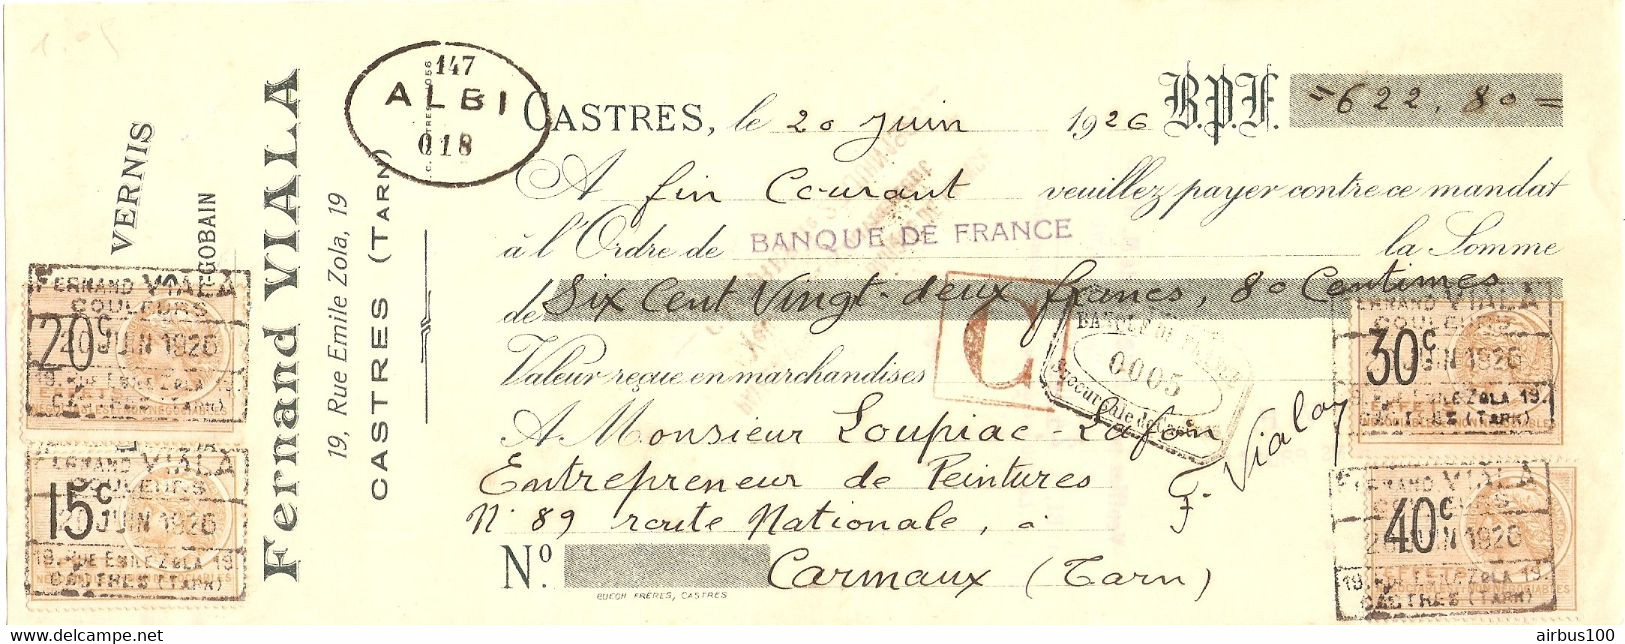 1.05
VERNIS
GOBAIN
Fernand VIALA
19, Rue Emile Zola, 19
CASTRES (TARN)
147
ALBI
018
CASTRES, le 20 Juin 1926 B.P.F. =622,80=
A fin Courant veuillez payer contre ce mandat
à l'Ordre de BANQUE DE FRANCE la Somme
de Six Cent Vingt-deux francs, 80 Centimes
Valeur reçue en marchandises
C
BANQUE DE FRANCE
0005
Succursale de
A Monsieur Loupiac-Lafon
Entrepreneur de Peintures
N° 89 route Nationale, à
Carmaux (Tarn)
F. Viala
N°.
BUEOH FRÈRES, CASTRES
FERNAND VIALA
COULEURS
20c
20 JUIN 1926
19, RUE EMILE ZOLA, 19
CASTRES (TARN)
FERNAND VIALA
COULEURS
15c
20 JUIN 1926
19, RUE EMILE ZOLA, 19
CASTRES (TARN)
FERNAND VIALA
COULEURS
30c
JUIN 1926
RUE EMILE ZOLA, 19
CASTRES (TARN)
FERNAND VIALA
40c
20 JUIN 1926
19, RUE EMILE ZOLA, 19
CASTRES (TARN)
www.delcampe.net
airbus100